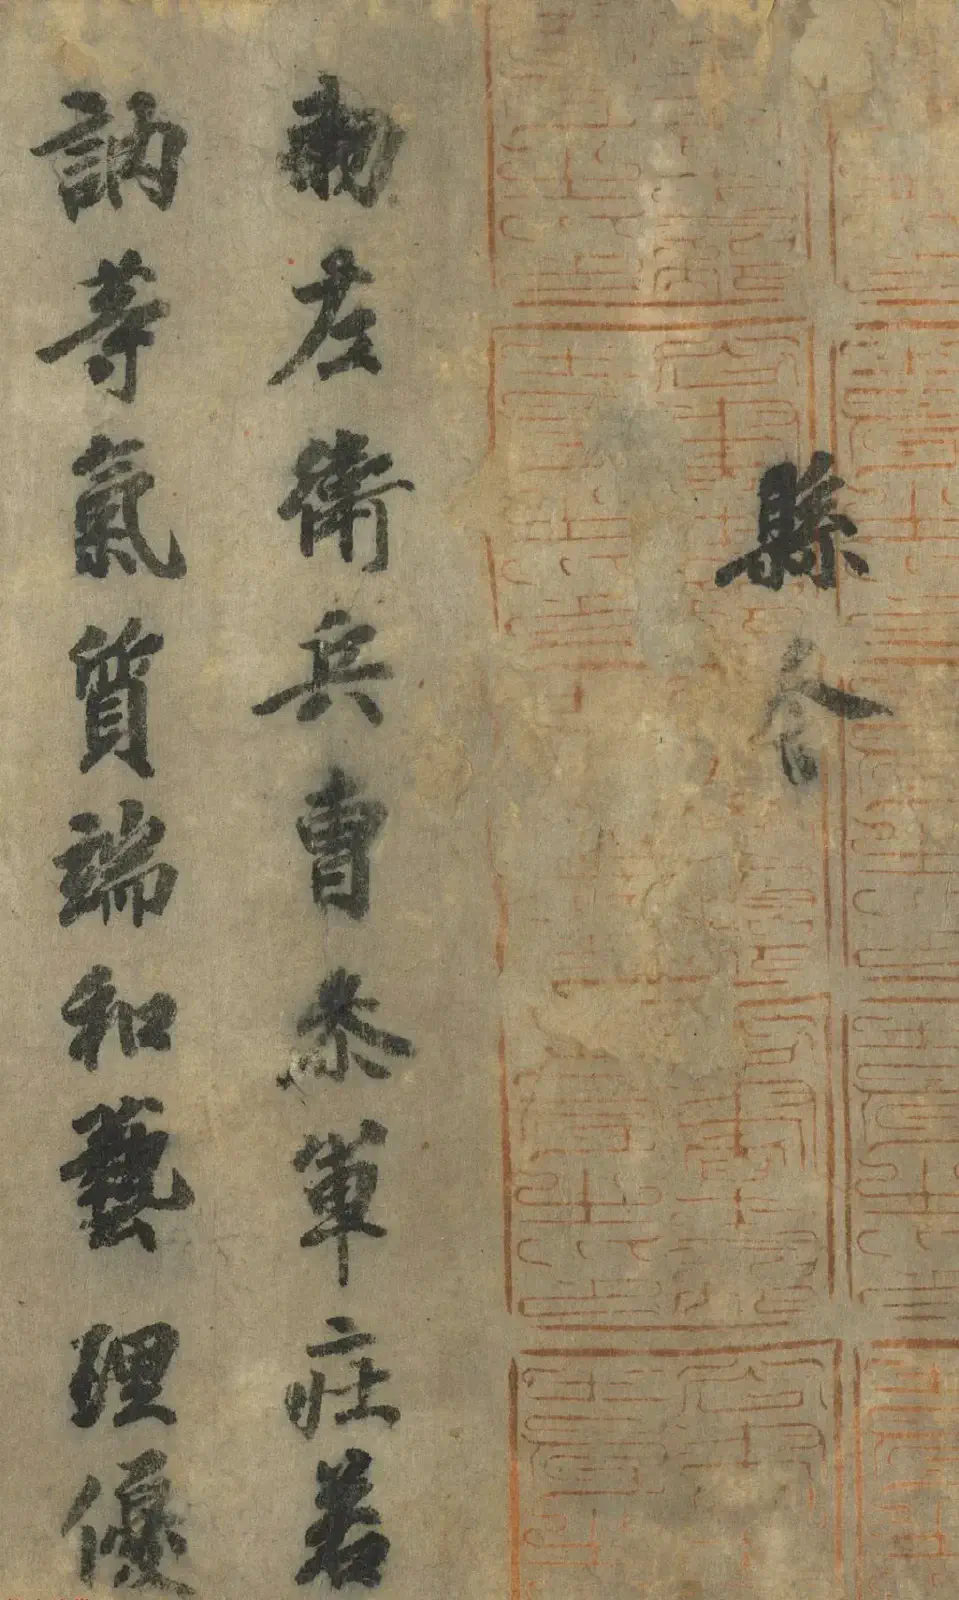 縣令
勅左衛兵曹參軍莊若
訥等氣質端和藝理優